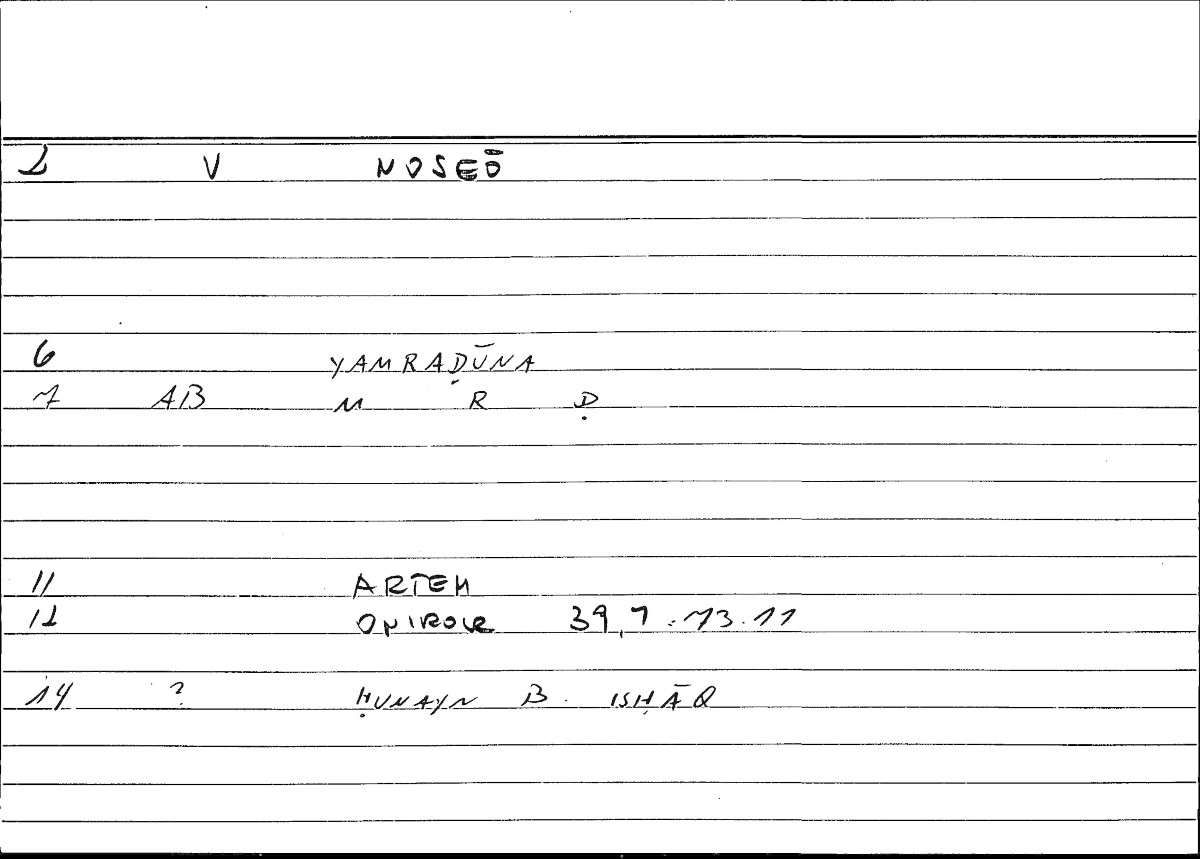 2 V NOSEŌ
6 YAMRAḌŪNA
7 AB M R Ḍ
11 ARTEM
12 ONIROCR 39,7 : 73.11
14 ? ḤUNAYN B. ISḤĀQ